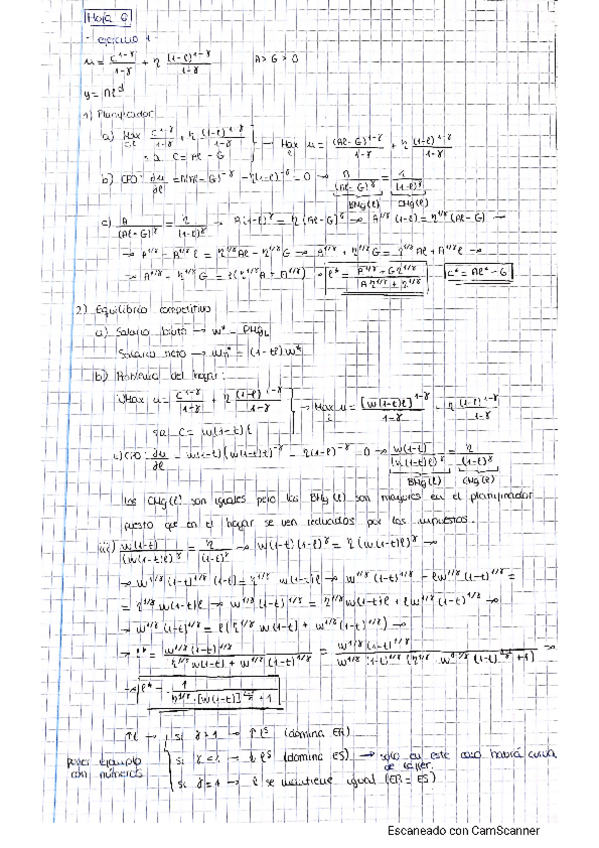 Hoja 6
- ejercicio 1 -
u = c^(1-γ)/(1-γ) + η (1-l)^(1-γ)/(1-γ)     A > G > 0
1) Planificador
a) Max c^(1-γ)/(1-γ) + η (1-l)^(1-γ)/(1-γ) → Max u = (Al - G)^(1-γ)/(1-γ) + η (1-l)^(1-γ)/(1-γ)
s.a. C = Al - G
b) CPO: du/dl = A(Al - G)^-γ - η(1-l)^-γ = 0 → A/(Al - G)^γ = η/(1-l)^γ
BMg(l)   CMg(l)
c) A/(Al - G)^γ = η/(1-l)^γ → A(1-l)^γ = η (Al - G)^γ → A^1/γ (1-l) = η^1/γ (Al - G) →
→ A^1/γ - A^1/γ l = η^1/γ Al - η^1/γ G → A^1/γ + η^1/γ G = η^1/γ Al + A^1/γ l →
l* = (A^1/γ + Gη^1/γ)/(Aη^1/γ + A^1/γ)     C* = Al* - G
2) Equilibrio competitivo
a) Salario bruto → w* = PMgL
Salario neto → wn* = (1-t) w*
b) Problema del hogar:
Max u = c^(1-γ)/(1-γ) + η (1-l)^(1-γ)/(1-γ) → Max u = [w(1-t)l]^(1-γ)/(1-γ) + η (1-l)^(1-γ)/(1-γ)
s.a. C = w(1-t)l
CPO: du/dl = w(1-t)(w(1-t)l)^-γ - η(1-l)^-γ = 0 → w(1-t)/(w(1-t)l)^γ = η/(1-l)^γ
BMg(l)   CMg(l)
Las CMg(l) son iguales pero las BMg(l) son mayores en el planificador
puesto que en el hogar se ven reducidos por los impuestos.
iii) w(1-t)/(w(1-t)l)^γ = η/(1-l)^γ → w(1-t)(1-l)^γ = η (w(1-t)l)^γ →
→ w^1/γ (1-t)^1/γ (1-l) = η^1/γ w(1-t)l → w^1/γ (1-t)^1/γ - l w^1/γ (1-t)^1/γ =
= η^1/γ w(1-t)l → w^1/γ (1-t)^1/γ = η^1/γ w(1-t)l + l w^1/γ (1-t)^1/γ →
→ w^1/γ (1-t)^1/γ = l(η^1/γ w(1-t) + w^1/γ (1-t)^1/γ) →
→ l* = w^1/γ (1-t)^1/γ / (η^1/γ w(1-t) + w^1/γ (1-t)^1/γ)
si γ > 1 → ↑ l^s (domina ER)
(domina ES) → solo en este caso habrá curva
de Laffer.
si γ = 1 → l se mantiene igual (ER = ES)
ejemplo
con números
Escaneado con CamScanner